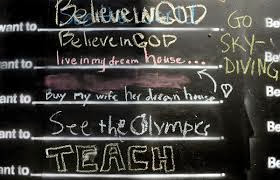 Believe in GOD
GO SKY-DIVING
Be
Believe in GOD
want to
live in my dream house...
Be
want to
Be
Buy my wife her dream house
want to
Be
See the Olympics
want to
Be
TEACH
want to
Be